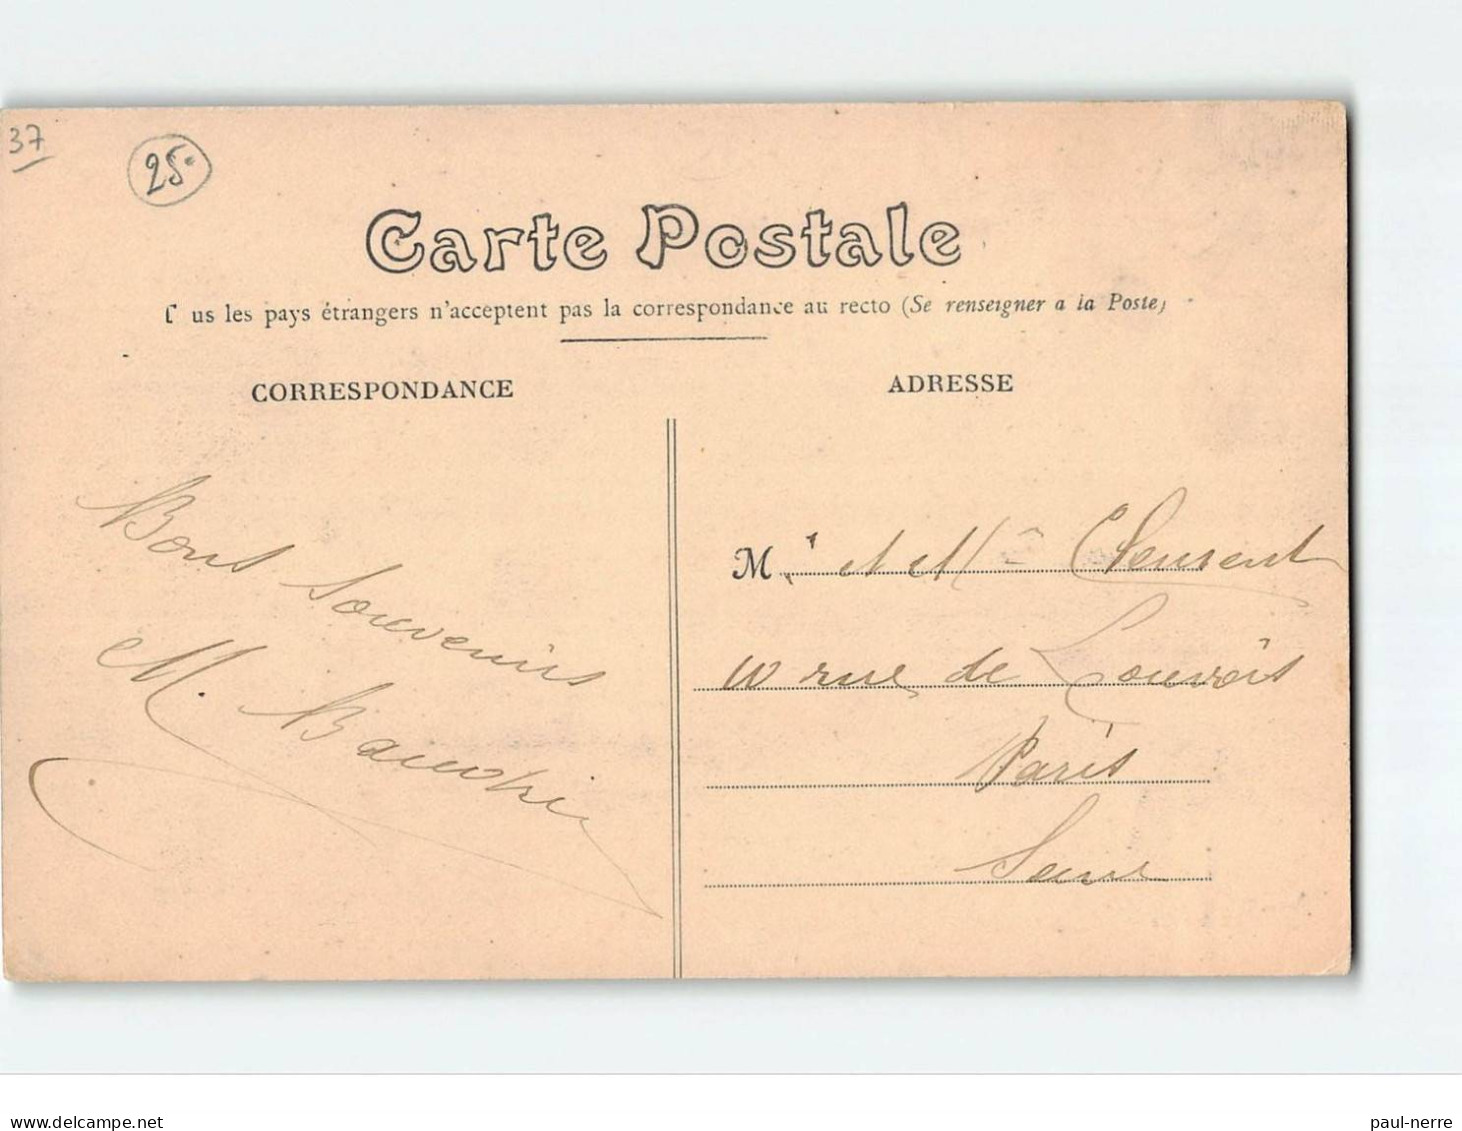 37
25
Carte Postale
us les pays étrangers n'acceptent pas la correspondance au recto (Se renseigner a la Poste)
CORRESPONDANCE
ADRESSE
Bons Souvenirs
M.
M. et Mme
10 rue de Louvois
Paris
Seine
delcampe.net
paul-nerre